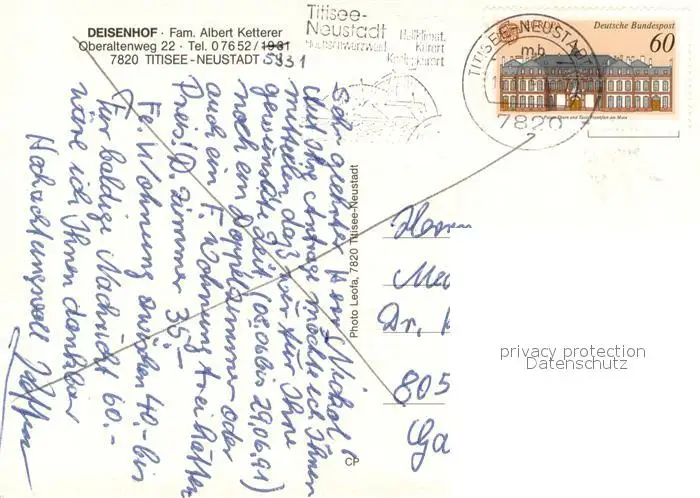 DEISENHOF · Fam. Albert Ketterer
Oberaltenweg 22 · Tel. 07652/1931
5931
7820 TITISEE-NEUSTADT
Titisee-
Neustadt
Hochschwarzwald
Heilklimat.
Kurort
Kneippkurort
TITISEE-NEUSTADT
mb
7820
EUROPA
Deutsche Bundespost
60
Palais Thurn und Taxis Frankfurt am Main
Sehr geehrter Herr Nickol
Auf Ihre Anfrage möchte ich Ihnen
mitteilen, daß wir für Ihre
gewünschte Zeit (08.06 bis 29.06.91)
noch ein Doppelzimmer oder
auch ein F. Wohnung frei hätten
Preis: D. Zimmer 35.–
Fe. Wohnung zwischen 40.– bis 60.–
Für baldige Nachricht
wäre ich Ihnen dankbar
Hochachtungsvoll
Photo Leofa, 7820 Titisee-Neustadt
CP
Herrn
Dr.
805
Ga
privacy protection
Datenschutz